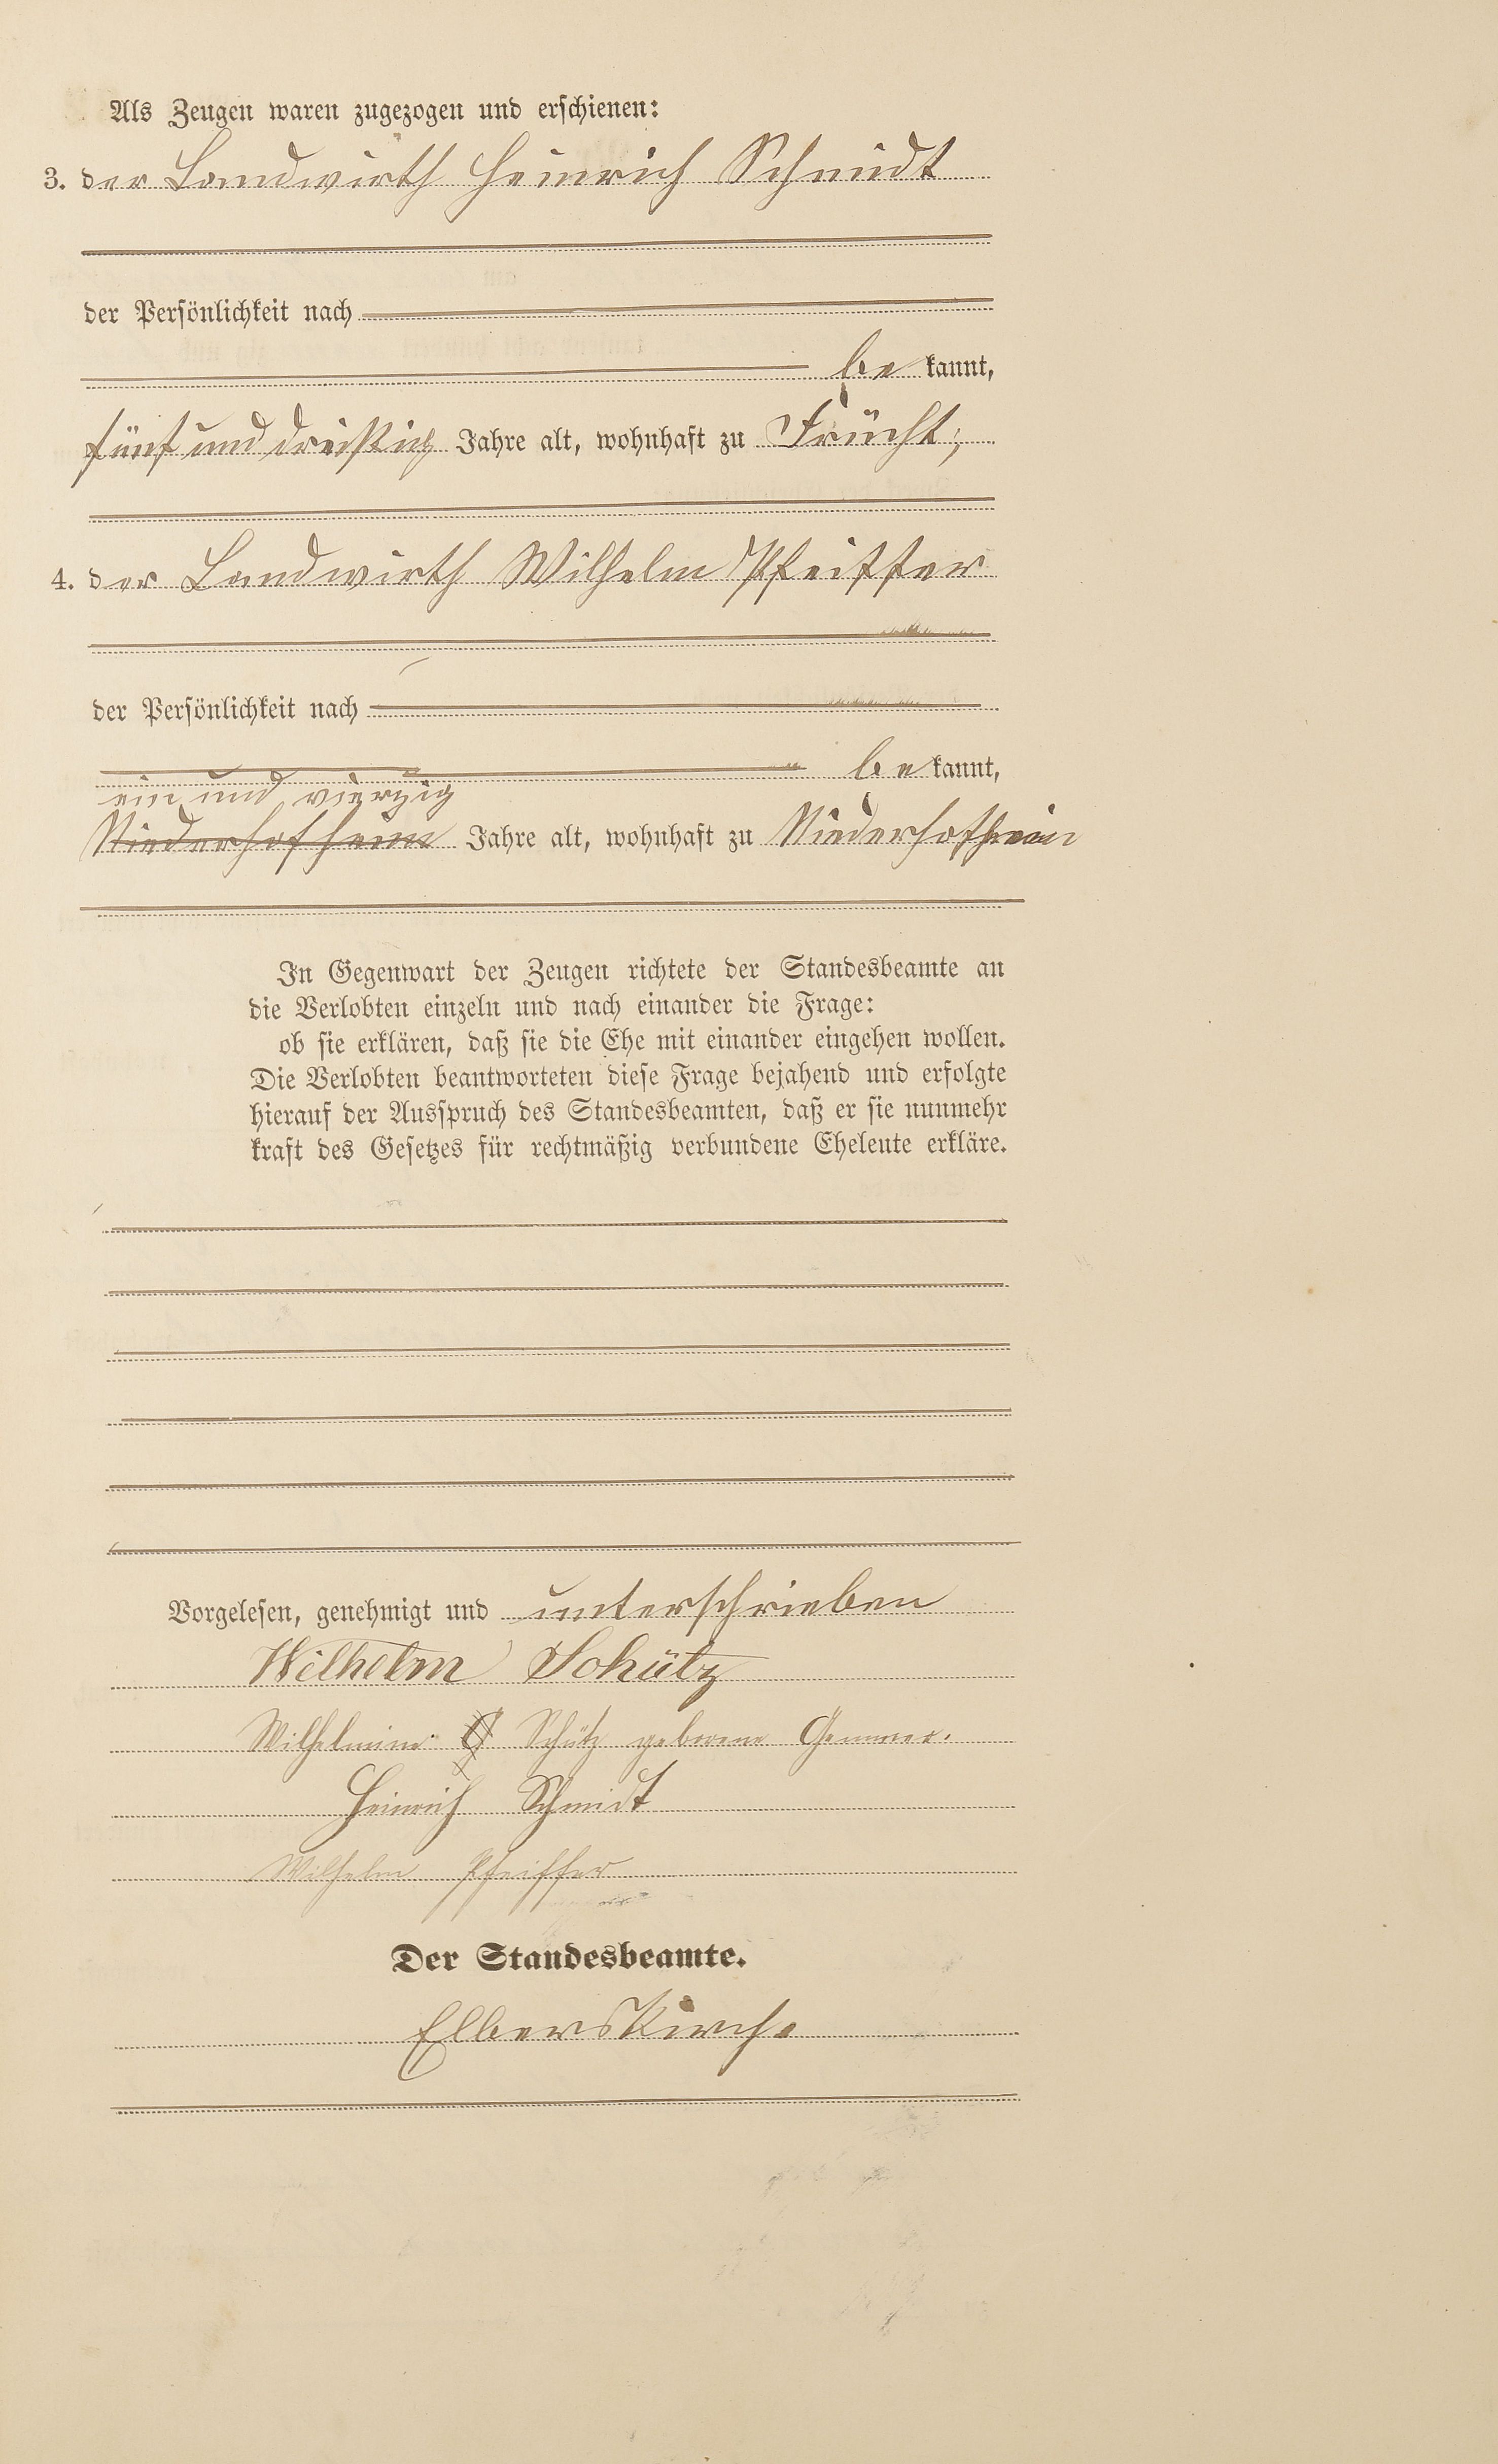 Als Zeugen waren zugezogen und erschienen:
3. der Landwirth Heinrich Schmidt
der Persönlichkeit nach
be kannt,
fünf und dreißig Jahre alt, wohnhaft zu Frücht;
4. der Landwirth Wilhelm Pfeiffer
der Persönlichkeit nach
be kannt,
ein und vierzig
Niederhofheim Jahre alt, wohnhaft zu Niederhofheim
In Gegenwart der Zeugen richtete der Standesbeamte an
die Verlobten einzeln und nach einander die Frage:
ob sie erklären, daß sie die Ehe mit einander eingehen wollen.
Die Verlobten beantworteten diese Frage bejahend und erfolgte
hierauf der Ausspruch des Standesbeamten, daß er sie nunmehr
kraft des Gesetzes für rechtmäßig verbundene Eheleute erkläre.
Vorgelesen, genehmigt und unterschrieben
Wilhelm Schütz
Wilhelmine G Schütz geborene Gemmer.
Heinrich Schmidt
Wilhelm Pfeiffer
Der Standesbeamte.
Elberskirch.